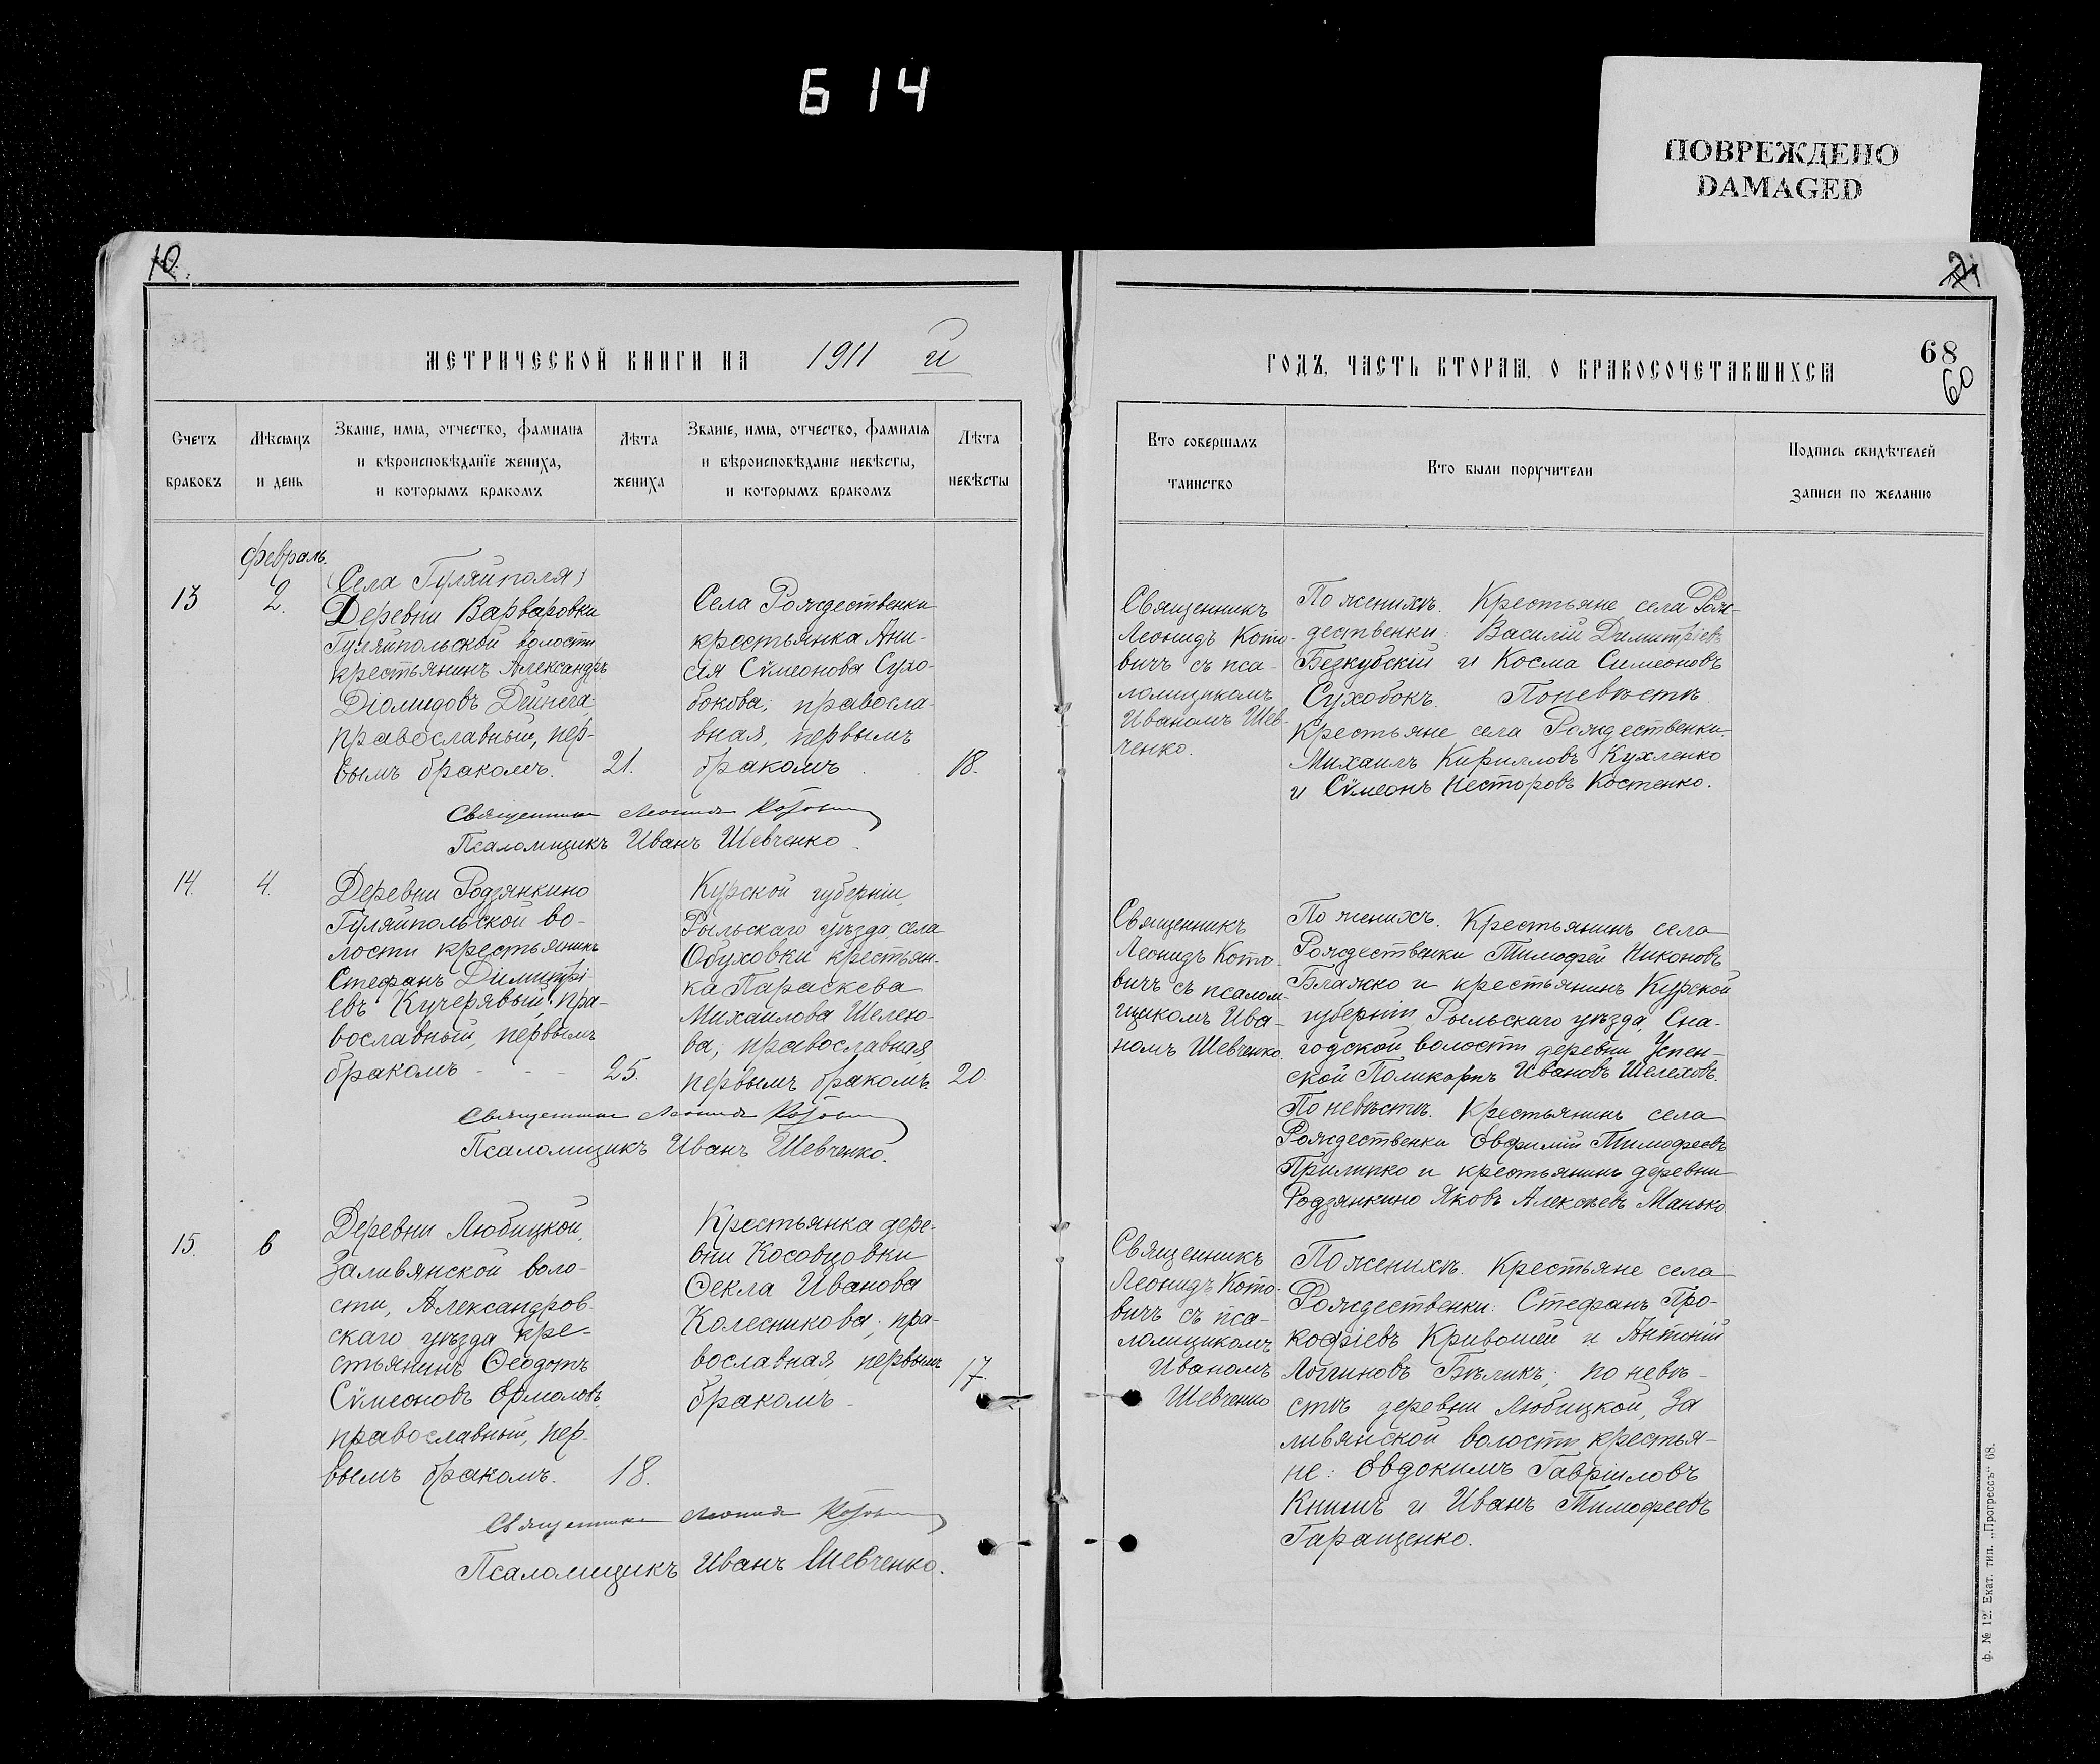 614
ПОВРЕЖДЕНО
DAMAGED
10.
МЕТРИЧЕСКОЙ КНИГИ НА 1911 й
ГОДЪ, ЧАСТЬ ВТОРАЯ, О БРАКОСОЧЕТАВШИХСЯ
68
60
Счетъ браковъ
Мѣсяцъ и день
Званіе, имя, отчество, фамилія
и вѣроисповѣданіе жениха,
и которымъ бракомъ
Лѣта жениха
Званіе, имя, отчество, фамилія
и вѣроисповѣданіе невѣсты,
и которымъ бракомъ
Лѣта невѣсты
Кто совершалъ таинство
Кто были поручители
Подпись свидѣтелей записи по желанію
Февраль.
13
2.
(Села Гуляйполя)
Деревни Варваровки
Гуляйпольской волости
крестьянинъ Александръ
Діомидовъ Дейнега,
православный, пер-
вымъ бракомъ.
21.
Села Рождественки
крестьянка Ани-
сія Сѵмеонова Сухо-
бокова; правосла-
вная, первымъ
бракомъ
18.
Священникъ
Леонидъ Кото-
вичъ съ пса-
ломщикомъ
Иваномъ Шев-
ченко.
По женихѣ. Крестьяне села Рож-
дественки: Василій Димитріевъ
Безкубскій и Косма Симеоновъ
Сухобокъ. По невѣстѣ
Крестьяне села Рождественки.
Михаилъ Кирилловъ Кухленко
и Сѵмеонъ Несторовъ Костенко.
Священникъ Леонидъ Котовичъ
Псаломщикъ Иванъ Шевченко.
14.
4.
Деревни Родзянкино
Гуляйпольской во-
лости крестьянинъ
Стефанъ Димитрі-
евъ Кучерявый, пра-
вославный, первымъ
бракомъ - - -
25.
Курской губерніи,
Рыльскаго уѣзда, села
Обуховки крестьян-
ка Параскева
Михаилова Шелехо-
ва; православная,
первымъ бракомъ.
20.
Священникъ
Леонидъ Кото-
вичъ съ псалом-
щикомъ Ива-
номъ Шевченко.
По женихѣ. Крестьянинъ села
Рождественки Тимофей Никоновъ
Блажко и крестьянинъ Курской
губерніи Рыльскаго уѣзда, Сна-
годской волости деревни Успен-
ской Поликарпъ Ивановъ Шелеховъ.
По невѣстѣ. Крестьянинъ села
Рождественки Евфимій Тимофеевъ
Прилипко и крестьянинъ деревни
Родзянкино Яковъ Алексѣевъ Манько.
Священникъ Леонидъ Котовичъ
Псаломщикъ Иванъ Шевченко.
15.
6
Деревни Любицкой,
Заливянской воло-
сти, Александров-
скаго уѣзда кре-
стьянинъ Ѳеодотъ
Сѵмеоновъ Ермоловъ,
православный, пер-
вымъ бракомъ.
18.
Крестьянка дере-
вни Косовцовки
Ѳекла Иванова
Колесникова; пра-
вославная, первымъ
бракомъ
17.
Священникъ
Леонидъ Кото-
вичъ съ пса-
ломщикомъ
Иваномъ
Шевченко
По женихѣ. Крестьяне села
Рождественки: Стефанъ Про-
кофіевъ Кривошей и Антоній
Логгиновъ Бѣликъ; по невѣ-
стѣ деревни Любицкой, За
ливянской волости крестья-
не: Евдокимъ Гавріиловъ
Книшъ и Иванъ Тимофеевъ
Гаращенко.
Священникъ Леонидъ Котовичъ
Псаломщикъ Иванъ Шевченко.
Ф. № 12. Екат. тип. „Прогрессъ“ 68.